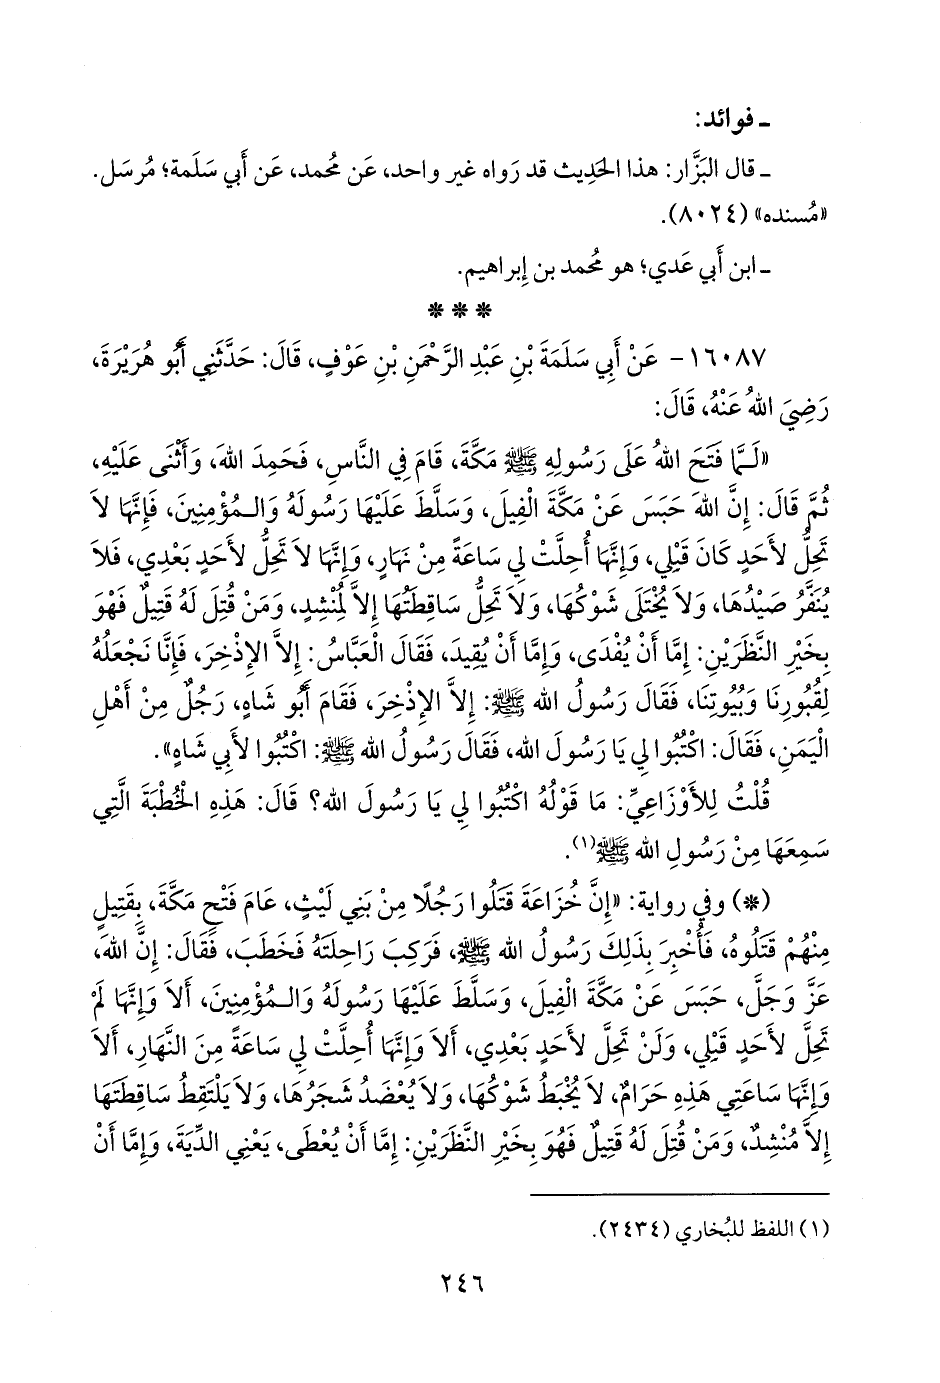 ـ فوائد:
ـ قال البَزَّار: هذا الحَدِيث قد رَواه غير واحد، عَن مُحمد، عَن أَبي سَلَمة؛ مُرسَل.
«مُسنده» (٨٠٢٤).
ـ ابن أَبي عَدي؛ هو مُحمد بن إِبراهيم.
* * *
١٦٠٨٧- عَنْ أَبِي سَلَمَةَ بْنِ عَبْدِ الرَّحْمَنِ بْنِ عَوْفٍ، قَالَ: حَدَّثَنِي أَبُو هُرَيْرَةَ،
رَضِيَ اللهُ عَنْهُ، قَالَ:
«لَـمَّا فَتَحَ اللهُ عَلَى رَسُولِهِ ﷺ مَكَّةَ، قَامَ فِي النَّاسِ، فَحَمِدَ اللهَ، وَأَثْنَى عَلَيْهِ،
ثُمَّ قَالَ: إِنَّ اللهَ حَبَسَ عَنْ مَكَّةَ الْفِيلَ، وَسَلَّطَ عَلَيْهَا رَسُولَهُ وَالـمُؤْمِنِينَ، فَإِنَّهَا لاَ
تَحِلُّ لأَحَدٍ كَانَ قَبْلِي، وَإِنَّهَا أُحِلَّتْ لِي سَاعَةً مِنْ نَهَارٍ، وَإِنَّهَا لاَ تَحِلُّ لأَحَدٍ بَعْدِي، فَلاَ
يُنَفَّرُ صَيْدُهَا، وَلاَ يُخْتَلَى شَوْكُهَا، وَلاَ تَحِلُّ سَاقِطَتُهَا إِلاَّ لِمُنْشِدٍ، وَمَنْ قُتِلَ لَهُ قَتِيلٌ فَهْوَ
بِخَيْرِ النَّظَرَيْنِ: إِمَّا أَنْ يُفْدَى، وَإِمَّا أَنْ يُقِيدَ، فَقَالَ الْعَبَّاسُ: إِلاَّ الإِذْخِرَ، فَإِنَّا نَجْعَلُهُ
لِقُبُورِنَا وَبُيُوتِنَا، فَقَالَ رَسُولُ الله ﷺ: إِلاَّ الإِذْخِرَ، فَقَامَ أَبُو شَاهٍ، رَجُلٌ مِنْ أَهْلِ
الْيَمَنِ، فَقَالَ: اكْتُبُوا لِي يَا رَسُولَ الله، فَقَالَ رَسُولُ الله ﷺ: اكْتُبُوا لأَبِي شَاهٍ».
قُلْتُ لِلأَوْزَاعِيِّ: مَا قَوْلُهُ اكْتُبُوا لِي يَا رَسُولَ الله؟ قَالَ: هَذِهِ الْخُطْبَةَ الَّتِي
سَمِعَهَا مِنْ رَسُولِ الله ﷺ(١).
(*) وفي رواية: «إِنَّ خُزَاعَةَ قَتَلُوا رَجُلًا مِنْ بَنِي لَيْثٍ، عَامَ فَتْحِ مَكَّةَ، بِقَتِيلٍ
مِنْهُمْ قَتَلُوهُ، فَأُخْبِرَ بِذَلِكَ رَسُولُ الله ﷺ، فَرَكِبَ رَاحِلَتَهُ فَخَطَبَ، فَقَالَ: إِنَّ اللهَ،
عَزَّ وَجَلَّ، حَبَسَ عَنْ مَكَّةَ الْفِيلَ، وَسَلَّطَ عَلَيْهَا رَسُولَهُ وَالـمُؤْمِنِينَ، أَلاَ وَإِنَّهَا لَمْ
تَحِلَّ لأَحَدٍ قَبْلِي، وَلَنْ تَحِلَّ لأَحَدٍ بَعْدِي، أَلاَ وَإِنَّهَا أُحِلَّتْ لِي سَاعَةً مِنَ النَّهَارِ، أَلاَ
وَإِنَّهَا سَاعَتِي هَذِهِ حَرَامٌ، لاَ يُخْبَطُ شَوْكُهَا، وَلاَ يُعْضَدُ شَجَرُهَا، وَلاَ يَلْتَقِطُ سَاقِطَتَهَا
إِلاَّ مُنْشِدٌ، وَمَنْ قُتِلَ لَهُ قَتِيلٌ فَهُوَ بِخَيْرِ النَّظَرَيْنِ: إِمَّا أَنْ يُعْطَى، يَعْنِي الدِّيَةَ، وَإِمَّا أَنْ
(١) اللفظ للبُخاري (٢٤٣٤).
٢٤٦